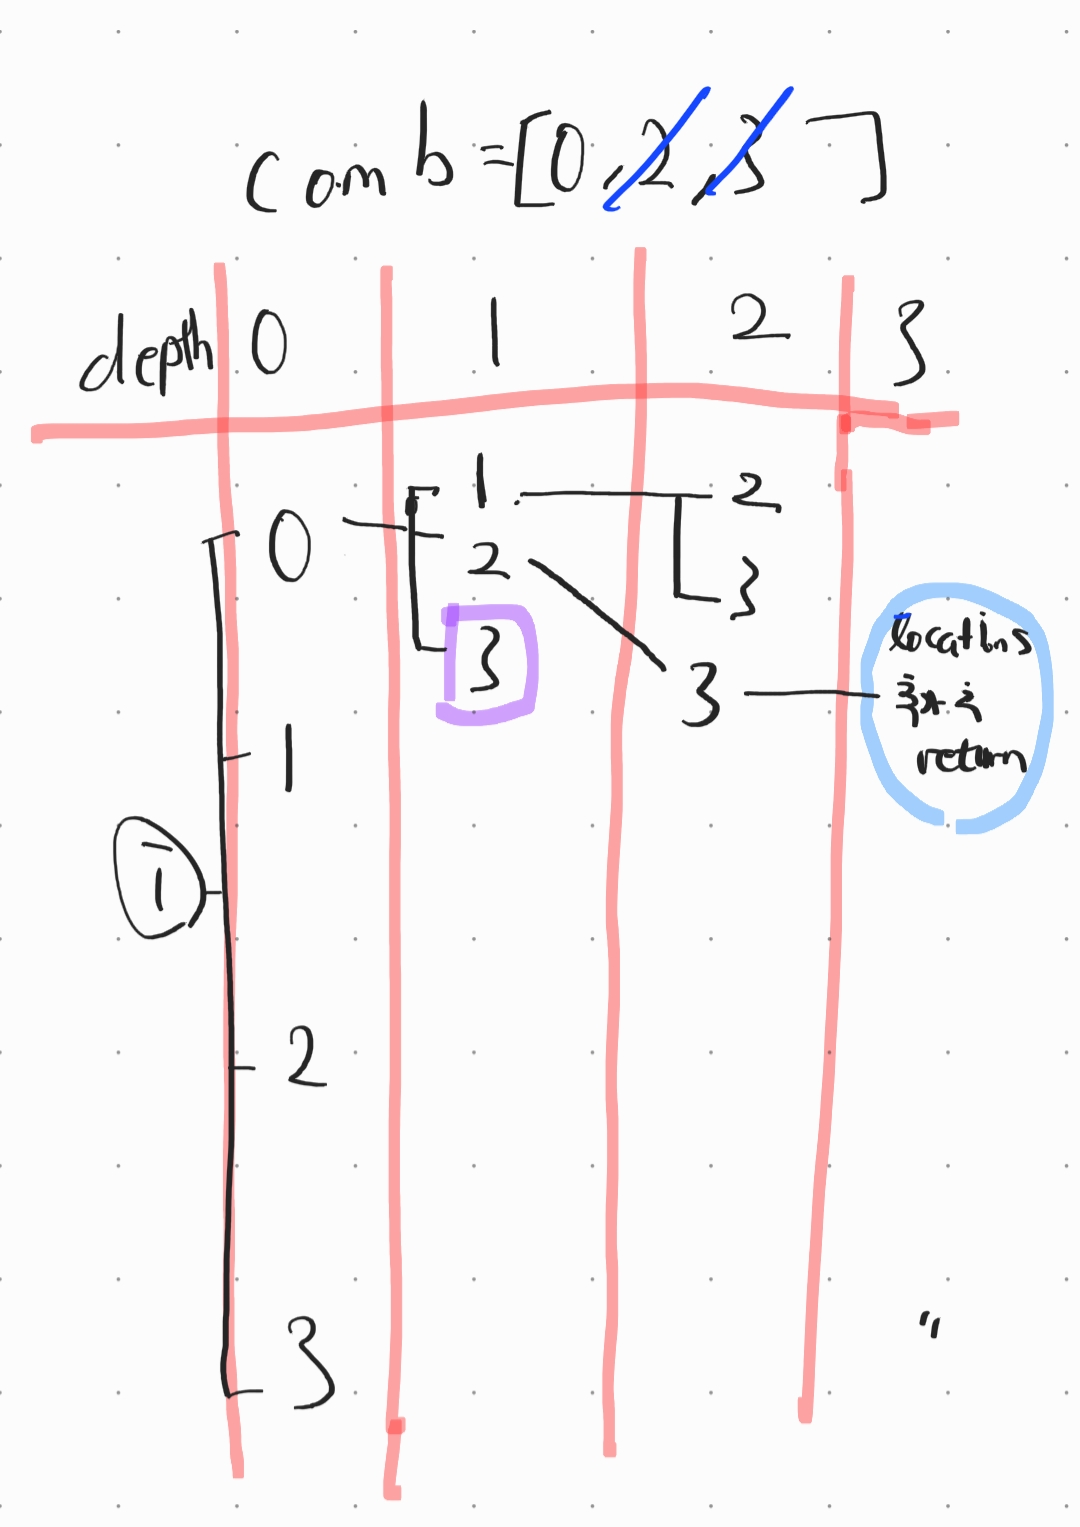 comb = [0, 2, 3 ]
depth 0 1 2 3
0 1 2
2 3
3 3 locations
추가
return
1
1
2
3